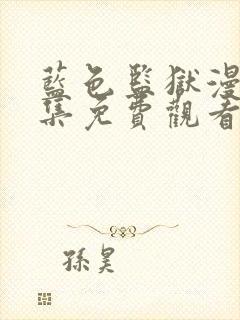 藍色監獄漫
集免費觀看
孫昊